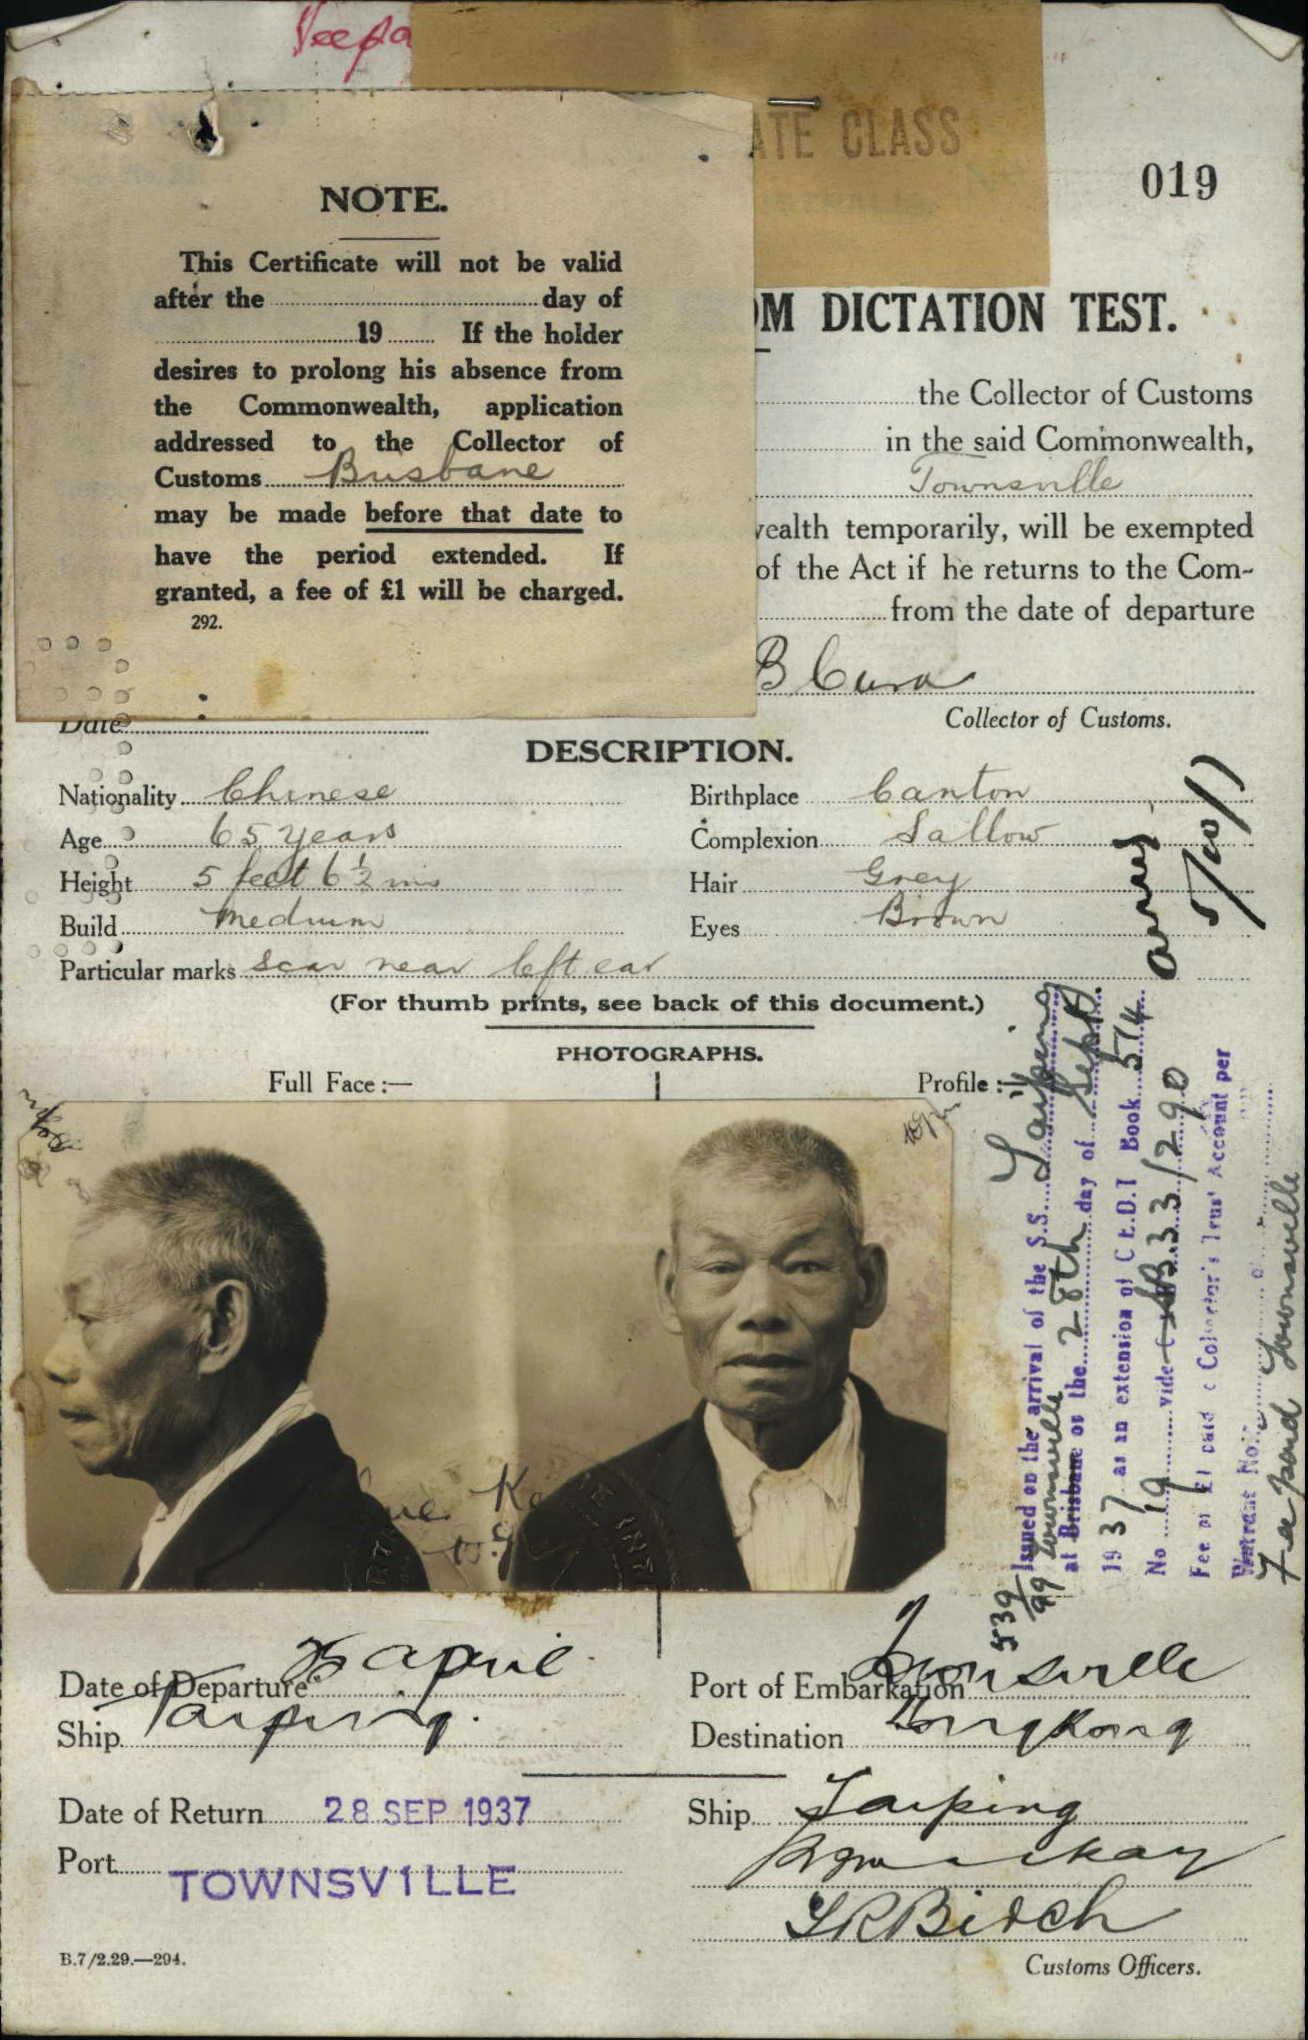 ATE CLASS
019
NOTE.
This Certificate will not be valid
after the day of
19 If the holder
desires to prolong his absence from
the Commonwealth, application
addressed to the Collector of
Customs Brisbane
may be made before that date to
have the period extended. If
granted, a fee of £1 will be charged.
292.
OM DICTATION TEST.
the Collector of Customs
in the said Commonwealth,
Townsville
wealth temporarily, will be exempted
of the Act if he returns to the Com-
from the date of departure
Date
Collector of Customs.
DESCRIPTION.
Nationality Chinese Birthplace Canton
Age 65 years Complexion Sallow
Height 5 feet 6 1/2 ins Hair Grey
Build Medium Eyes Brown
Particular marks scar near left ear
(For thumb prints, see back of this document.)
PHOTOGRAPHS.
Full Face:— Profile:—
Issued on the arrival of the S.S. Taiping
at Brisbane on the 28th day of Sept.
Townsville
1937 as an extension of C.E.D.T Book 514
No 19 vide B.33/290
Fee of £1 paid Collector's Trust Account per
Warrant No.
Townsville
539/99
Date of Departure 25 April Port of Embarkation Townsville
Ship Taiping. Destination Hong Kong
Date of Return 28 SEP 1937 Ship Taiping
Port TOWNSVILLE
Customs Officers.
B.7/2.29.—294.